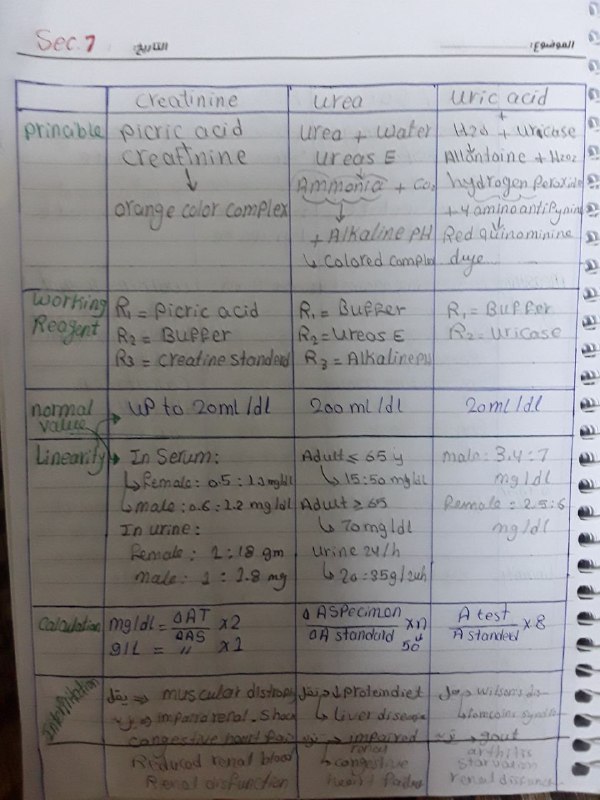 Sec. 7
التاريخ:
الموضوع:
creatinine
urea
uric acid
princible
picric acid
+
creatinine
↓
orange color complex
urea + water
ureas E
Ammonia + Co2
↓
+ Alkaline PH
↳ colored complex
+
H2O + uricase
↓
Allontoine + H2O2
hydrogen peroxide
+ 4 aminoantipynine
Red quinominine
dye
Working
Reagent
R1 = picric acid
R2 = Buffer
R3 = creatine standerd
R1 = Buffer
R2 = ureas E
R3 = Alkaline PH
R1 = Buffer
R2 = uricase
normal
value
up to 20ml/dl
200 ml/dl
20ml/dl
Linearity
In Serum:
↳ Female: 0.5 : 1.1 mg/dl
↳ male: 0.6 : 1.2 mg/dl
In urine:
Female: 1 : 18 gm
male: 1 : 1.8 mg
Adult ≤ 65 y
↳ 15:50 mg/dl
Adult ≥ 65
↳ 70mg/dl
urine 24/h
↳ 20:35g/24h
male: 3.4 : 7
mg/dl
Female: 2.5:6
mg/dl
Calculation
mg/dl = ΔAT / ΔAS x2
g/L = " x1
Δ ASpecimen / ΔA standard xn
50
A test / A standerd x8
بيقل ⇒ muscular distropy
impaire renal. Shock
congestive heart fail
Reduced renal blood
Renal disfunction
بيقل ↓ protein diet
↳ Liver disease
impaired
renal
↳ congestive
heart failure
wilson's
gout
arthitis
starvation
renal